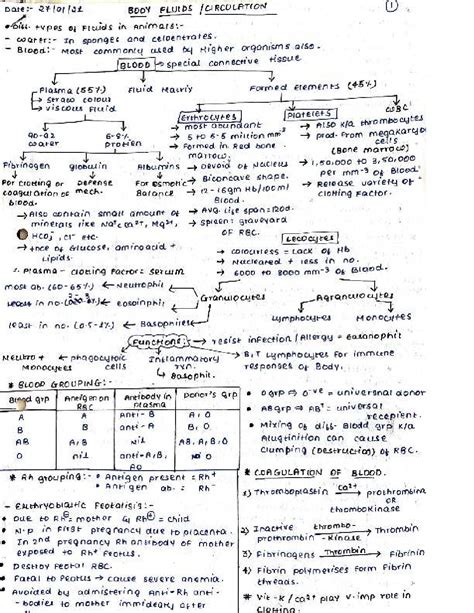 Date:- 27/01/21 BODY FLUIDS /CIRCULATION (1)
• Diff. types of Fluids in Animals:-
- Water:- In sponges and celoentrates.
- Blood:- Most commonly used by Higher organisms also.
BLOOD → special connective tissue
Plasma (55%) Fluid Matrix Formed elements (45%)
→ Straw colour
→ viscous Fluid
90-92 water 6-8% protien
Fibrinogen globulin Albumins
For clotting or coagulation of blood. Defense mech. For osmotic Balance
→ Also contain small amount of minerals like Na⁺, Ca²⁺, Mg²⁺, HCO₃⁻, Cl⁻ etc.
→ Glucose, aminoacid + Lipids.
Plasma - clotting factor = serum
Erthrocytes
→ most abundant
→ 5 to 5.5 million mm⁻³
→ Formed in Red bone marrow.
→ Devoid of Nucleus
→ Biconcave shape.
→ 12-16gm Hb/100ml Blood
→ Avg. life span = 120d.
→ spleen: graveyard of RBC.
Platelets
→ Also k/a thrombocytes
→ prod. From megakaryo cells (Bone marrow)
→ 1,50,000 to 3,50,000 per mm⁻³ of Blood
→ Release variety of clotting Factor.
WBC
Leococytes
→ colourless = Lack of Hb
→ Nucleated + less in no.
→ 6000 to 8000 mm⁻³ of Blood.
Granulocytes Agranulocytes
most ab. (60-65%) ← Neutrophil
← eosoinphil
least in no. (0.5-1%) ← Basophils
Lymphocytes Monocytes
Functions:-
→ resist infection / Allergy = Easonophil
→ B, T Lymphocytes for immune responses of Body.
Neutro + Monocytes ← phagocytoic cells
Inflammatory rxn. ↳ Basophil.
* BLOOD GROUPING:-
Blood grp Antigen on RBC Antibody in Plasma Donor's grp
A A anti-B A, O
B B anti-A B, O
AB A, B nil AB, A, B, O
O nil anti-A, B O
• O grp ⇒ O⁻ve = universal donor
• AB grp ⇒ AB⁺ = universal recepient.
• Mixing of diff. Blood grp k/a Alugtinition can cause clumping (Destruction) of RBC.
* Rh grouping:- • Antigen present = Rh⁺
• Antigen ab. = Rh⁻
- Erthyrobiastic Feotalisis:-
• Due to Rh⁻ = mother & Rh⁺ = child
• N.P in First pregnancy due to placenta.
• In 2nd pregnancy Rh antibody of mother exposed to Rh⁺ Feotus.
• Destroy Feotal RBC.
• Fatal to Feotus → cause severe anemia.
• Avoided by administering Anti-Rh anti-bodies to mother immideatly after
* COAGULATION OF BLOOD.
1) Thromboplastin Ca²⁺ → prothrombin OR thrombokinase
2) Inactive prothrombin thrombo-kinase → Thrombin
3) Fibrinogens Thrombin → Fibrinin
4) Fibrin polymerises form Fibrin threads.
* Vit-K / Ca²⁺ play v. imp role in Clotting.